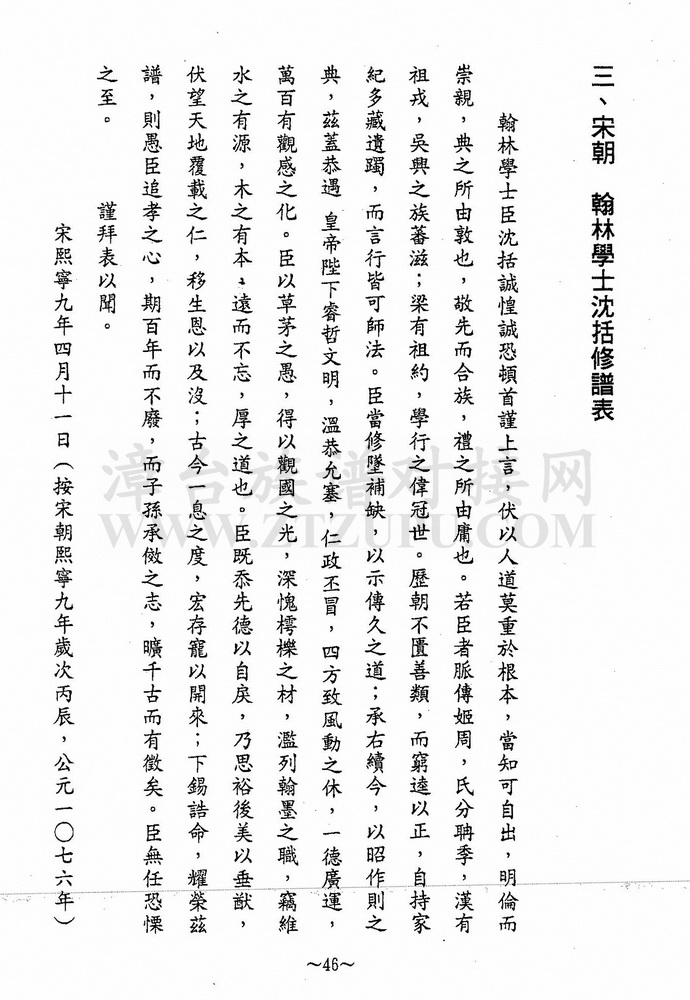 三、宋朝　翰林學士沈括修譜表
翰林學士臣沈括誠惶誠恐頓首謹上言，伏以人道莫重於根本，當知可自出，明倫而
崇親，典之所由敦也，敬先而合族，禮之所由庸也。若臣者脈傳姬周，氏分聃季，漢有
祖戎，吳興之族蕃滋；梁有祖約，學行之偉冠世。歷朝不匱善類，而窮逵以正，自持家
紀多藏遺躅，而言行皆可師法。臣當修墜補缺，以示傳久之道；承右續今，以昭作則之
典，茲蓋恭遇 皇帝陛下睿哲文明，溫恭允塞，仁政丕冒，四方致風動之休，一德廣運，
萬百有觀感之化。臣以草茅之愚，得以觀國之光，深愧樗櫟之材，濫列翰墨之職，竊維
水之有源，木之有本；遠而不忘，厚之道也。臣既忝先德以自戾，乃思裕後美以垂猷，
伏望天地覆載之仁，移生恩以及沒；古今一息之度，宏存寵以開來；下錫誥命，耀榮茲
譜，則愚臣追孝之心，期百年而不廢，而子孫承傚之志，曠千古而有徵矣。臣無任恐慄
之至。　謹拜表以聞。
宋熙寧九年四月十一日（按宋朝熙寧九年歲次丙辰，公元一〇七六年）
～46～
漳台族谱对接网
WWW.ZTZUPU.COM